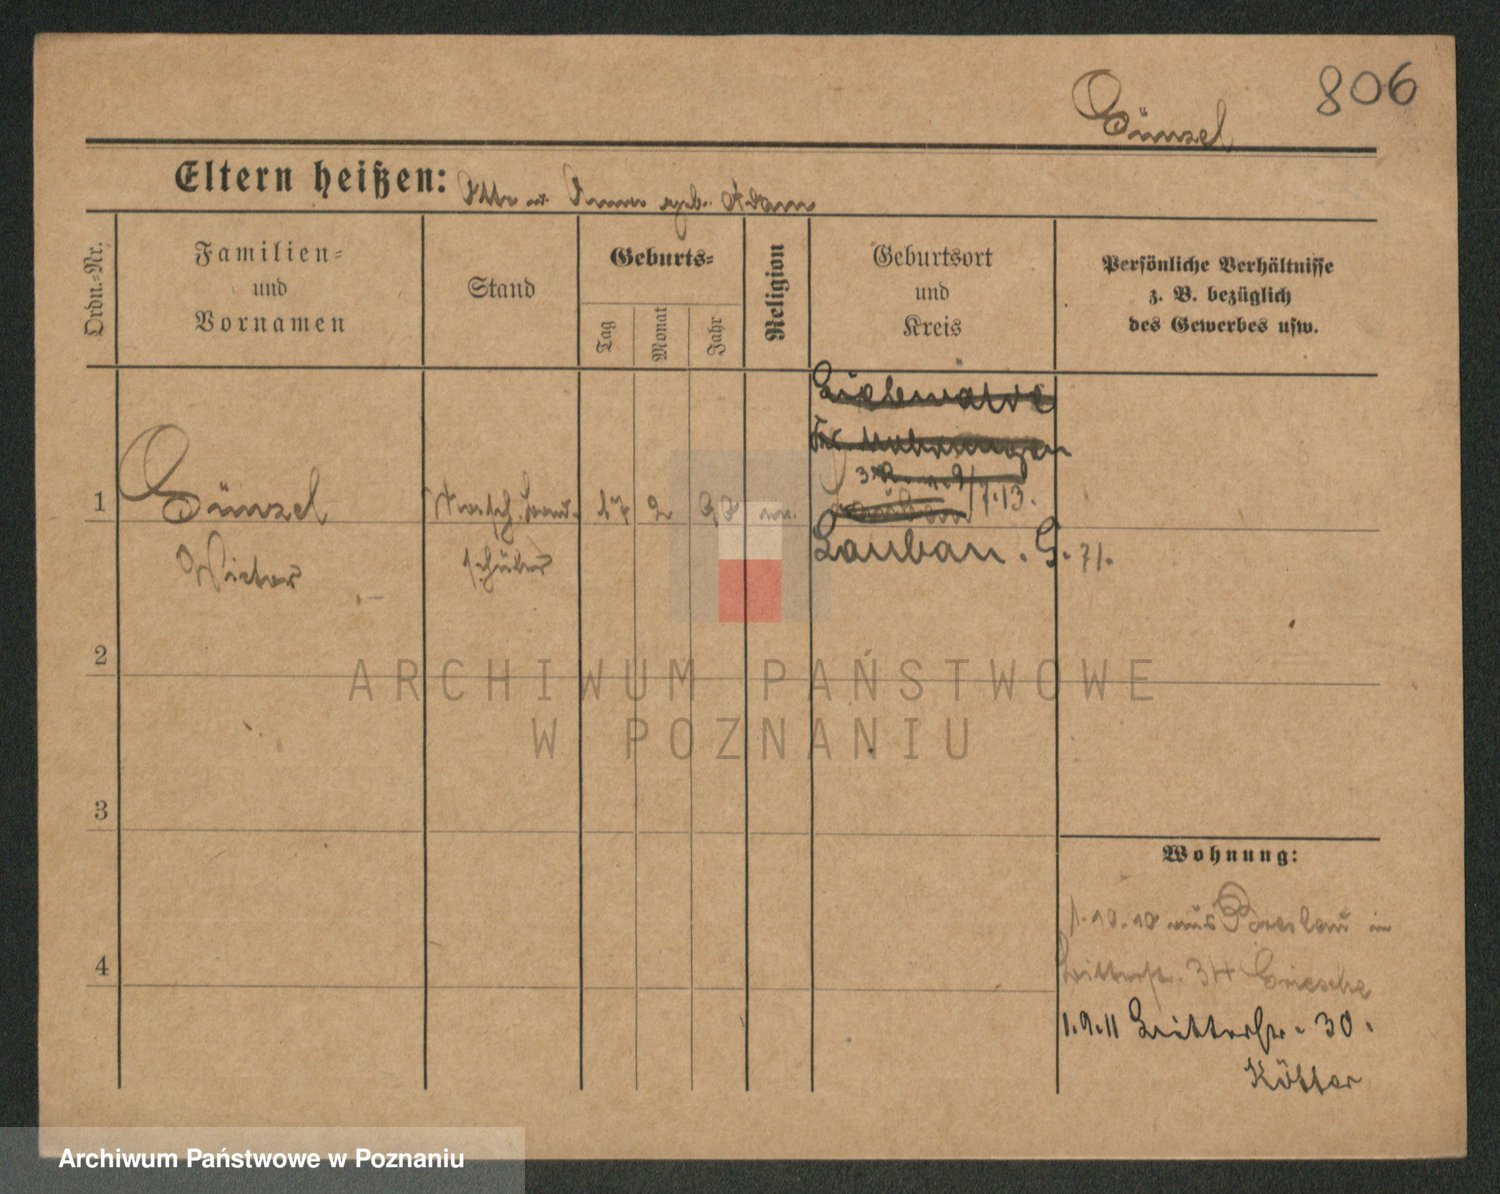 806
Günzel
Eltern heißen: Otto u. Anna geb. Adam
Ordn.-Nr.
Familien-
und
Vornamen
Stand
Geburts-
Tag
Monat
Jahr
Religion
Geburtsort
und
Kreis
Persönliche Verhältnisse
z. B. bezüglich
des Gewerbes usw.
Liebewalde
Mohrungen
9/7.13.
1
Günzel
2
Lauban. G. 71.
schüler
ARCHIWUM PAŃSTWOWE
W POZNANIU
2
3
4
Wohnung:
1.10.10 aus Breslau in
Ritterstr. 34 Griesche
1.9.11 Ritterstr. 30.
Kötter
Archiwum Państwowe w Poznaniu